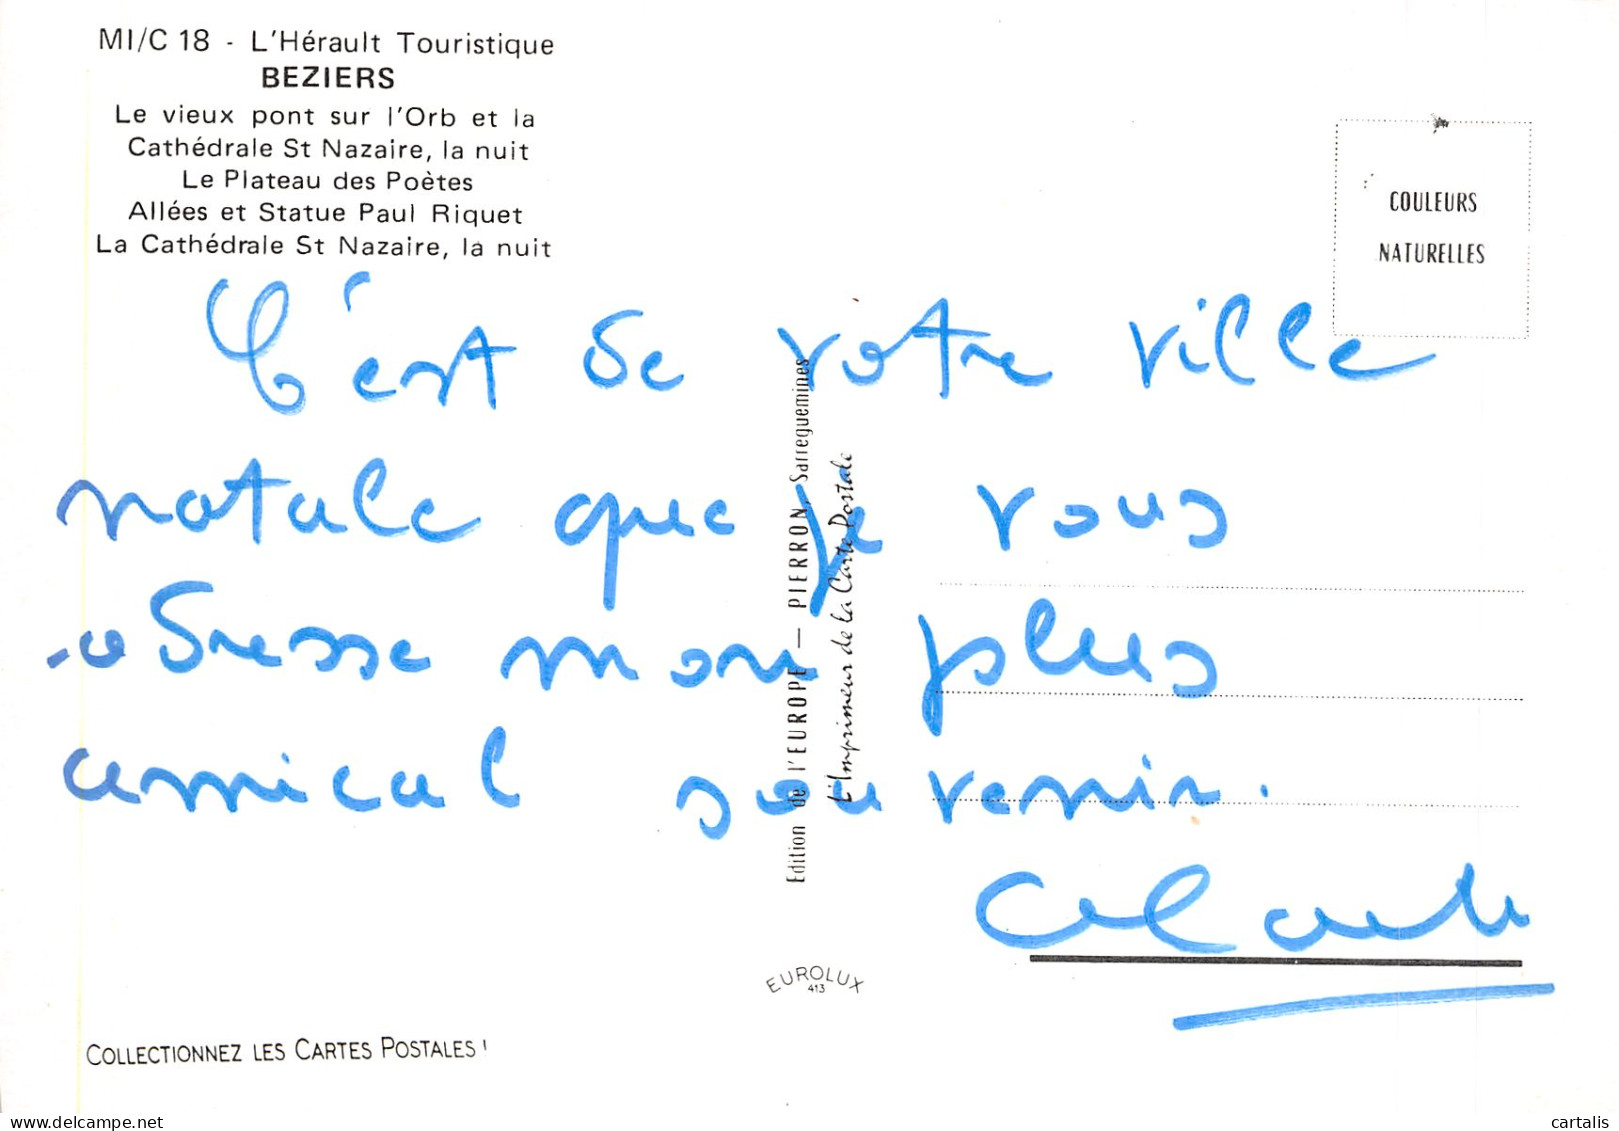 MI/C 18 - L'Hérault Touristique
BEZIERS
Le vieux pont sur l'Orb et la
Cathédrale St Nazaire, la nuit
Le Plateau des Poètes
Allées et Statue Paul Riquet
La Cathédrale St Nazaire, la nuit
COULEURS
NATURELLES
C'est de votre ville
natale que je vous
adresse mon plus
amical souvenir.
Edition de l'EUROPE — PIERRON, Sarreguemines
L'Imprimeur de la Carte Postale
EUROLUX
413
COLLECTIONNEZ LES CARTES POSTALES !
cartalis